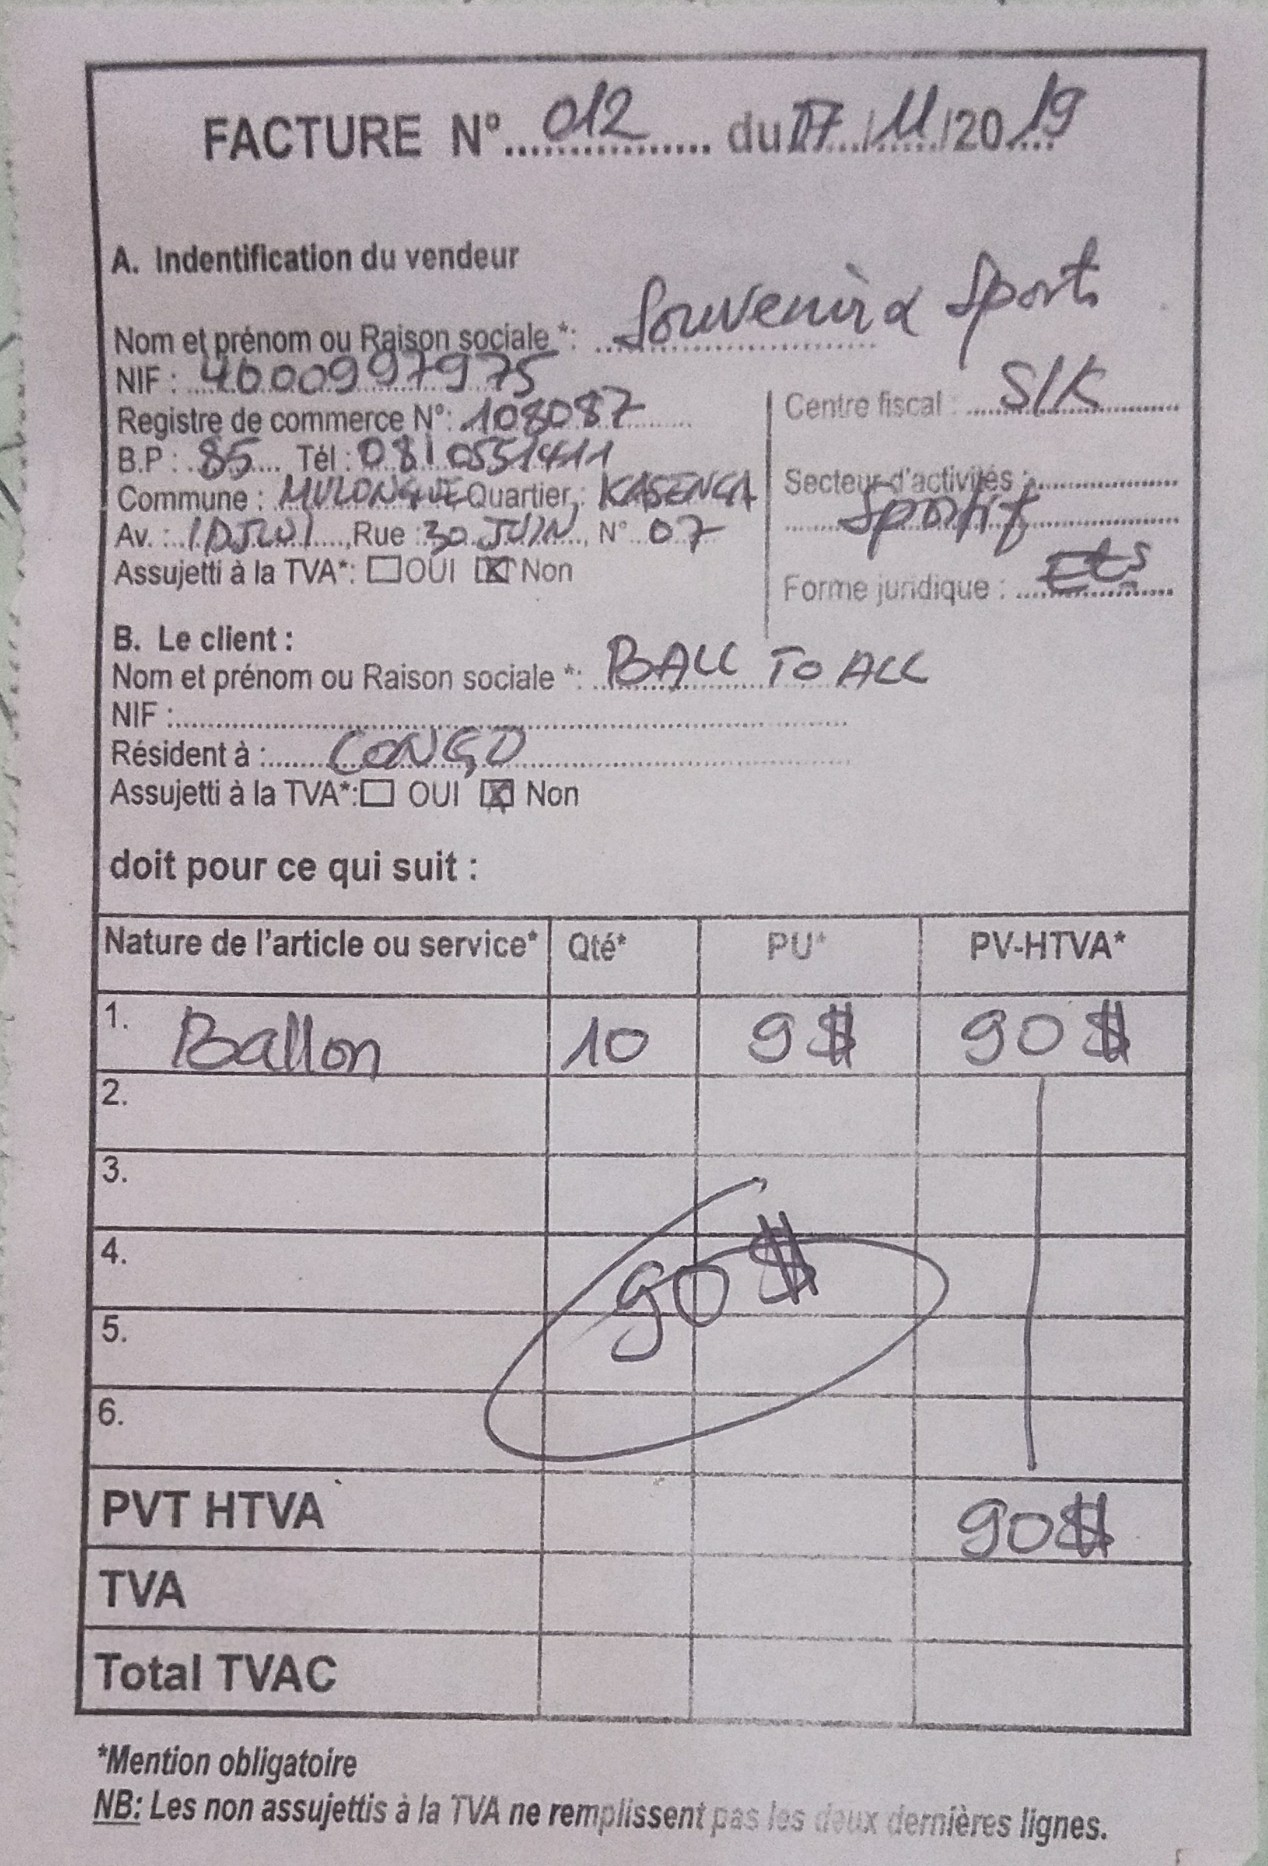 FACTURE N° 012 du 17/11/2019
A. Indentification du vendeur
Nom et prénom ou Raison sociale *: Souvenir Sports
NIF : 4000997975
Registre de commerce N°: 108087
B.P : 85 Tél : 0810551411
Commune : MULONGWE Quartier : KASENGA
Av. : IDJWI, Rue : 30 JUIN, N° 07
Assujetti à la TVA*: OUI X Non
Centre fiscal : S/K
Secteur d'activités :
Sportif
Forme juridique : Ets
B. Le client :
Nom et prénom ou Raison sociale *: BALL TO ALL
NIF :
Résident à : CONGO
Assujetti à la TVA*: OUI X Non
doit pour ce qui suit :
Nature de l'article ou service* Qté* PU* PV-HTVA*
1. Ballon 10 9$ 90$
2.
3.
4.
90$
5.
6.
PVT HTVA 90$
TVA
Total TVAC
*Mention obligatoire
NB: Les non assujettis à la TVA ne remplissent pas les deux dernières lignes.